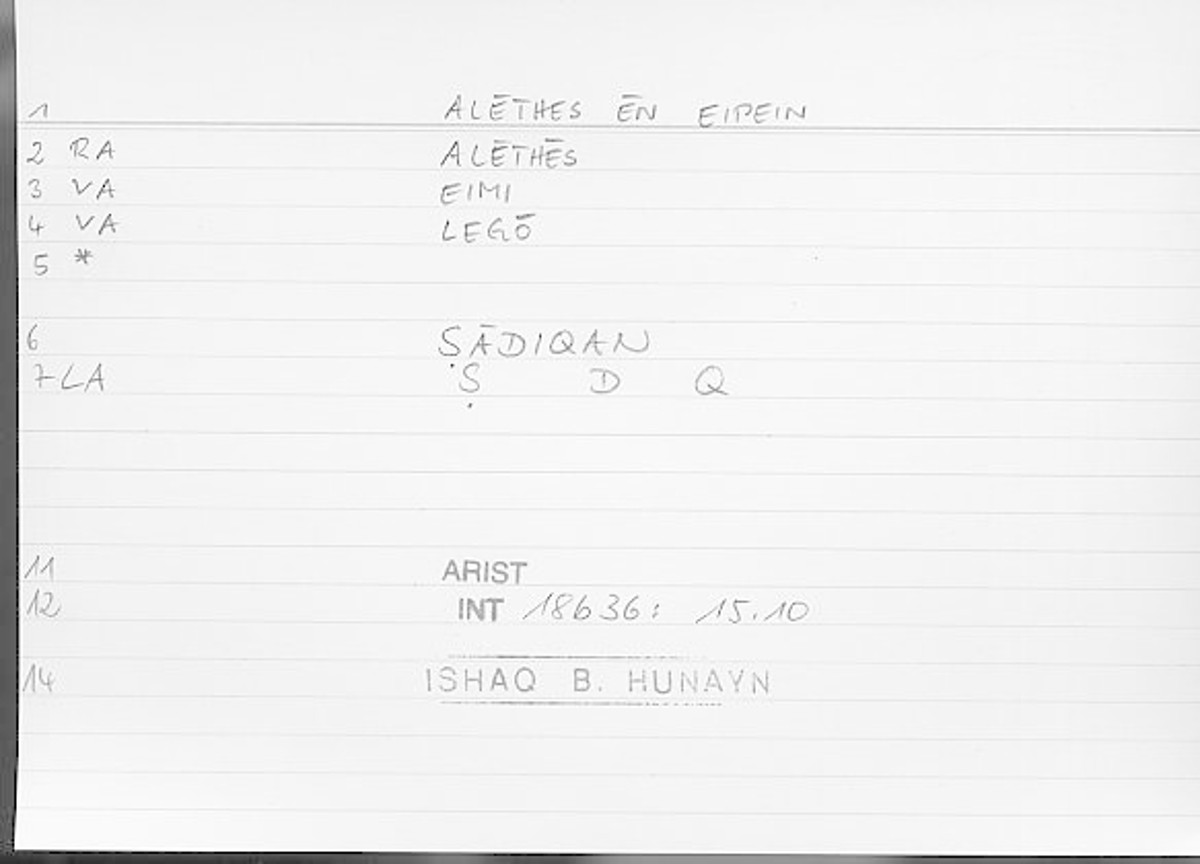 1 ALĒTHES ĒN EIPEIN
2 RA ALĒTHĒS
3 VA EIMI
4 VA LEGŌ
5 *
6 ṢĀDIQAN
7 LA Ṣ D Q
11 ARIST
12 INT 18636: 15.10
14 ISHAQ B. HUNAYN